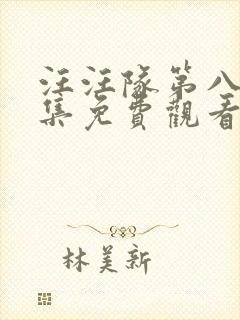 汪汪隊第八
集免費觀看
林美新